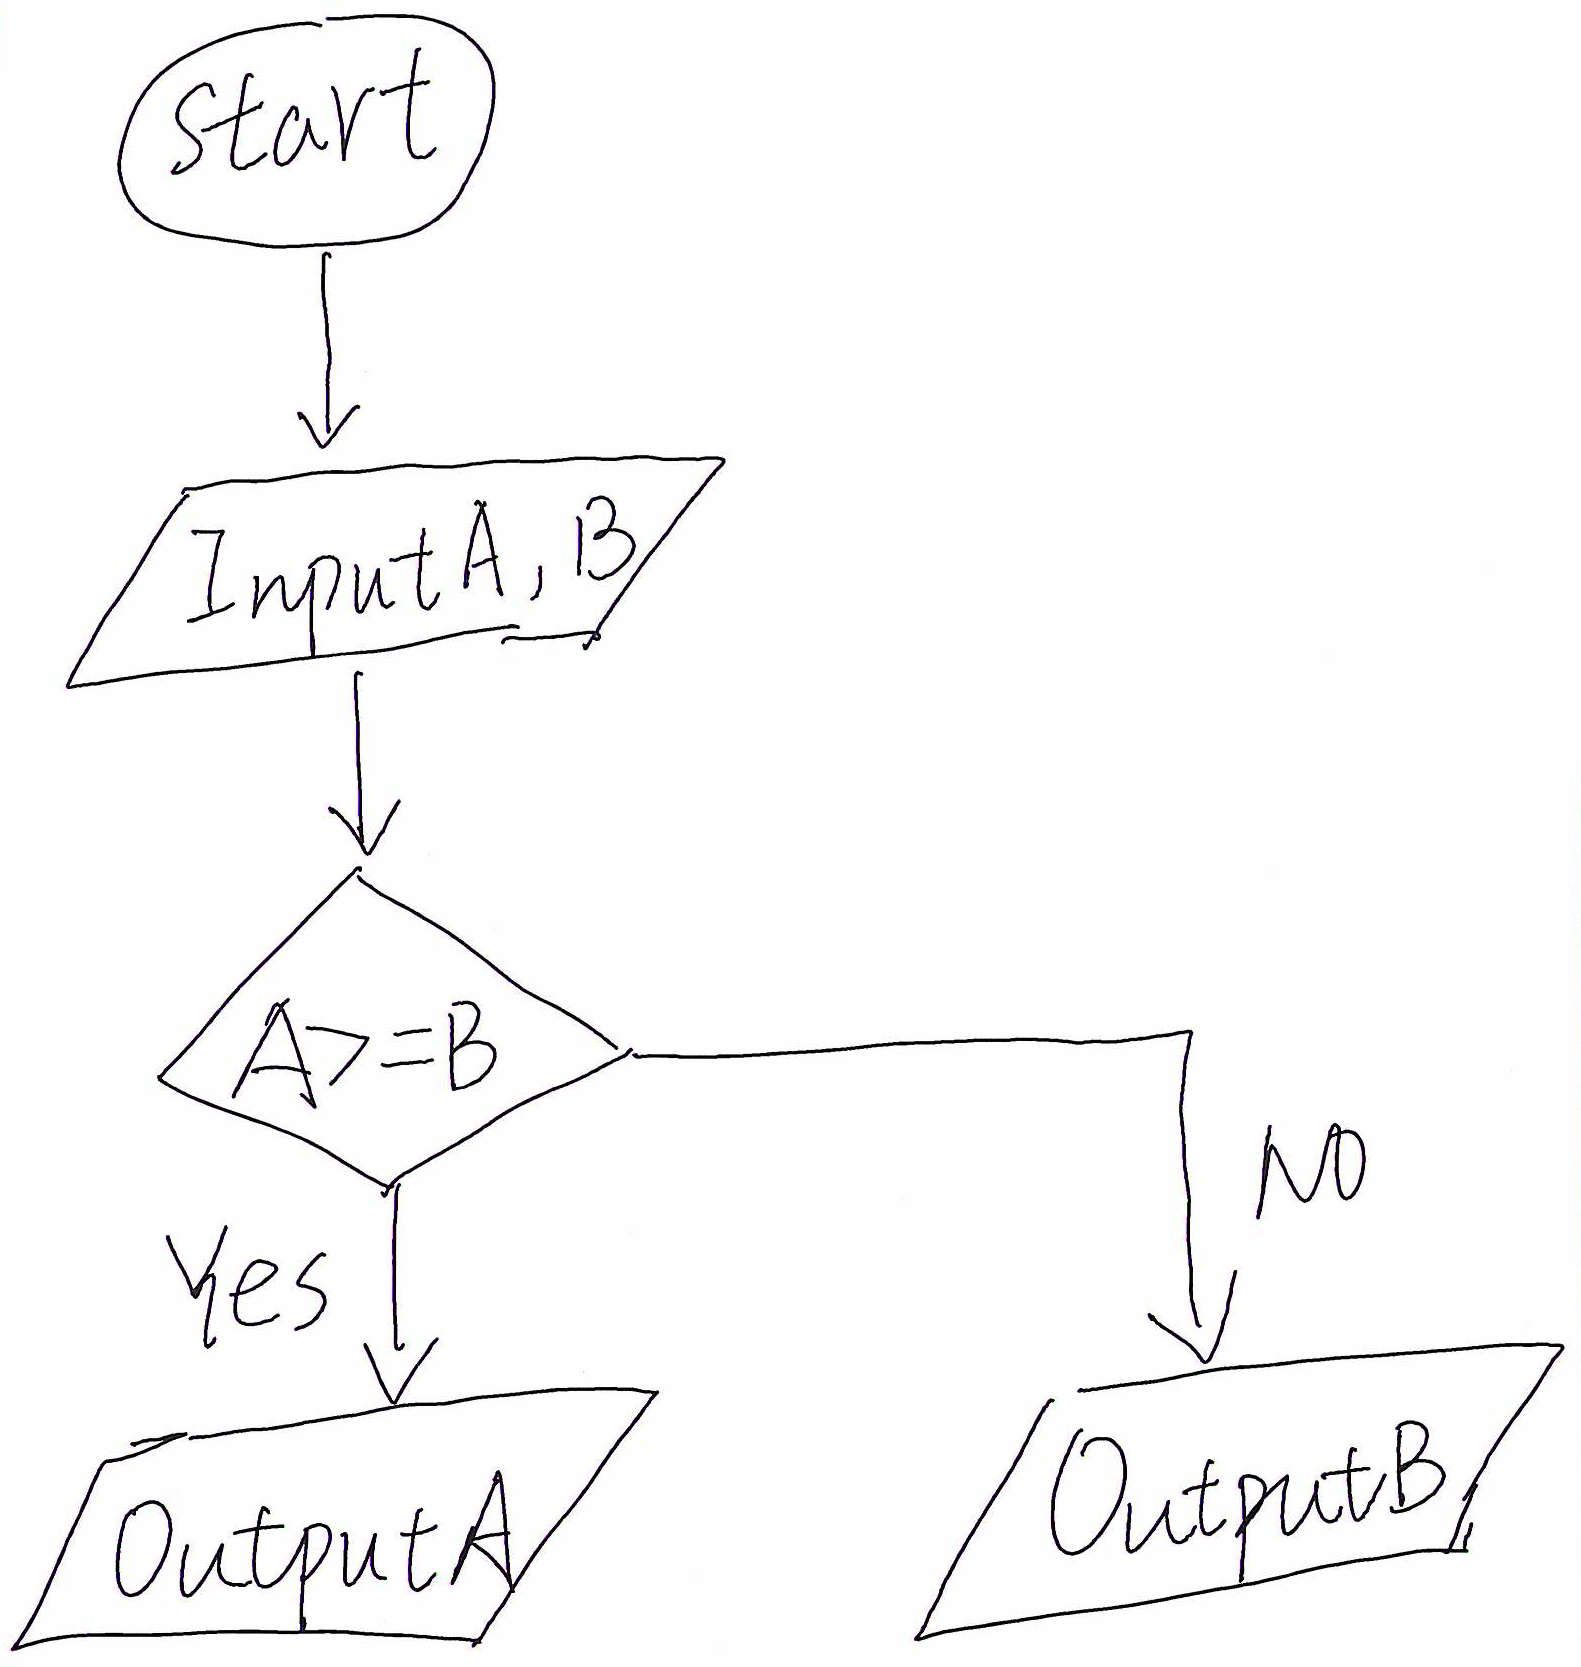 Start
Input A, B
A>=B
Yes
NO
Output A
Output B